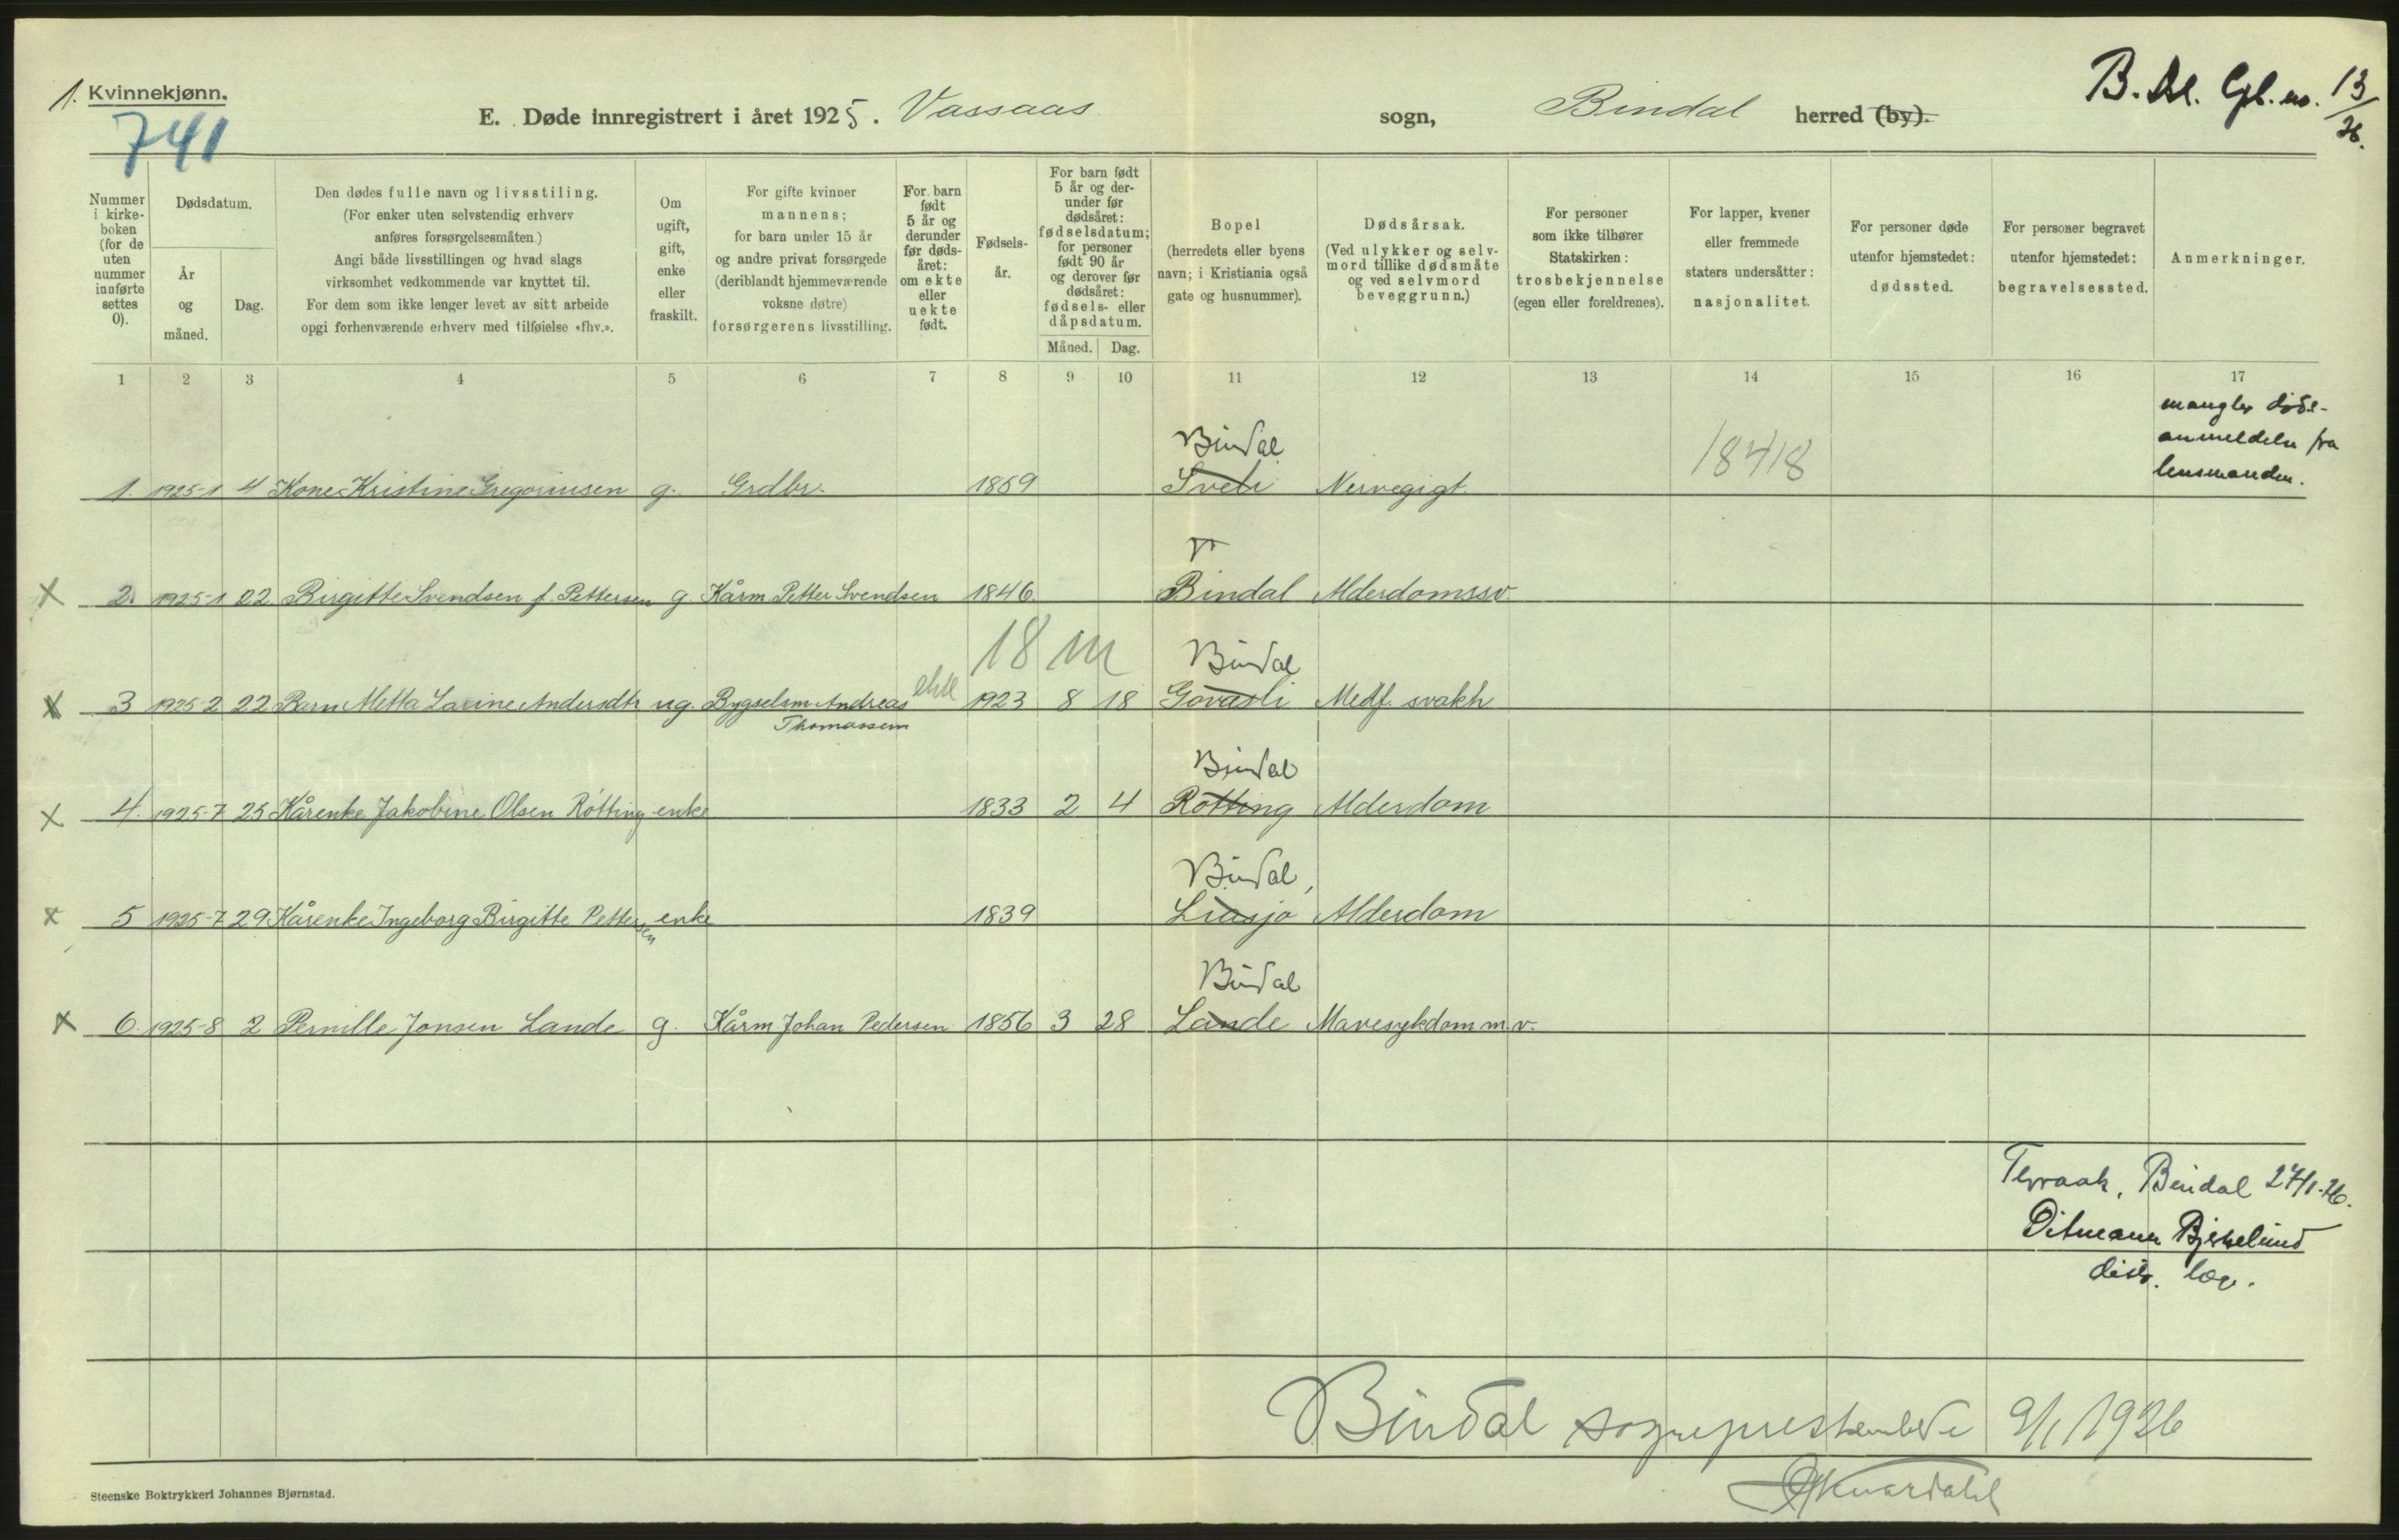 1. Kvinnekjønn.
741
E. Døde innregistrert i året 1925. Vassaas sogn, Bindal herred (by).
B. Dl. Gjb. no. 13/26.
Nummer i kirkeboken (for de uten nummer innførte settes 0).
Dødsdatum.
År og måned.
Dag.
Den dødes fulle navn og livsstiling.
(For enker uten selvstendig erhverv
anføres forsørgelsesmåten.)
Angi både livsstillingen og hvad slags
virksomhet vedkommende var knyttet til.
For dem som ikke lenger levet av sitt arbeide
opgi forhenværende erhverv med tilføielse «fhv.».
Om ugift, gift, enke eller fraskilt.
For gifte kvinner
mannens;
for barn under 15 år
og andre privat forsørgede
(deriblandt hjemmeværende
voksne døtre)
forsørgerens livsstilling.
For barn født 5 år og derunder før dødsåret: om ekte eller uekte født.
Fødselsår.
For barn født 5 år og derunder før dødsåret: fødselsdatum; for personer født 90 år og derover før dødsåret: fødsels- eller dåpsdatum.
Måned.
Dag.
Bopel
(herredets eller byens
navn; i Kristiania også
gate og husnummer).
Dødsårsak.
(Ved ulykker og selvmord tillike dødsmåte
og ved selvmord
beveggrunn.)
For personer
som ikke tilhører
Statskirken:
trosbekjennelse
(egen eller foreldrenes).
For lapper, kvener
eller fremmede
staters undersåtter:
nasjonalitet.
For personer døde
utenfor hjemstedet:
dødssted.
For personer begravet
utenfor hjemstedet:
begravelsessted.
Anmerkninger.
1 2 3 4 5 6 7 8 9 10 11 12 13 14 15 16 17
mangler døds-
anmeldelse fra
lensmanden.
Bindal
18418
1. 1925-1 4 Kone Kristine Gregoriusen g. Grdbr. 1859 Sveli Nervegigt.
2. 1925-1 22 Birgitte Svendsen f. Pettersen g. Kårm Petter Svendsen 1846. Bindal Alderdomssv.
18 m
Bindal
x 3 1925-2 22 Barn Metta Larine Andersdtr ug. Bygselsm Andreas ekte 1923 8 18 Govasli Medf. svakh
Thomassen
Bindal
x 4. 1925-7 25 Kårenke Jakobine Olsen Røtting enke 1833 2 4 Røtting Alderdom
Bindal,
x 5 1925-7 29 Kårenke Ingeborg Birgitte Pettersen enke 1839 Liasjø Alderdom
Bindal
x 6. 1925-8 2 Pernille Jonsen Lande g. Kårm. Johan Pedersen 1856 3 28 Lande Mavesykdom m.v.
Terraak, Bindal 27/1-26.
Ditmann Bjerkelund
distr. læge.
Bindal sogneprestembede 9/1 1926
Steenske Boktrykkeri Johannes Bjørnstad.